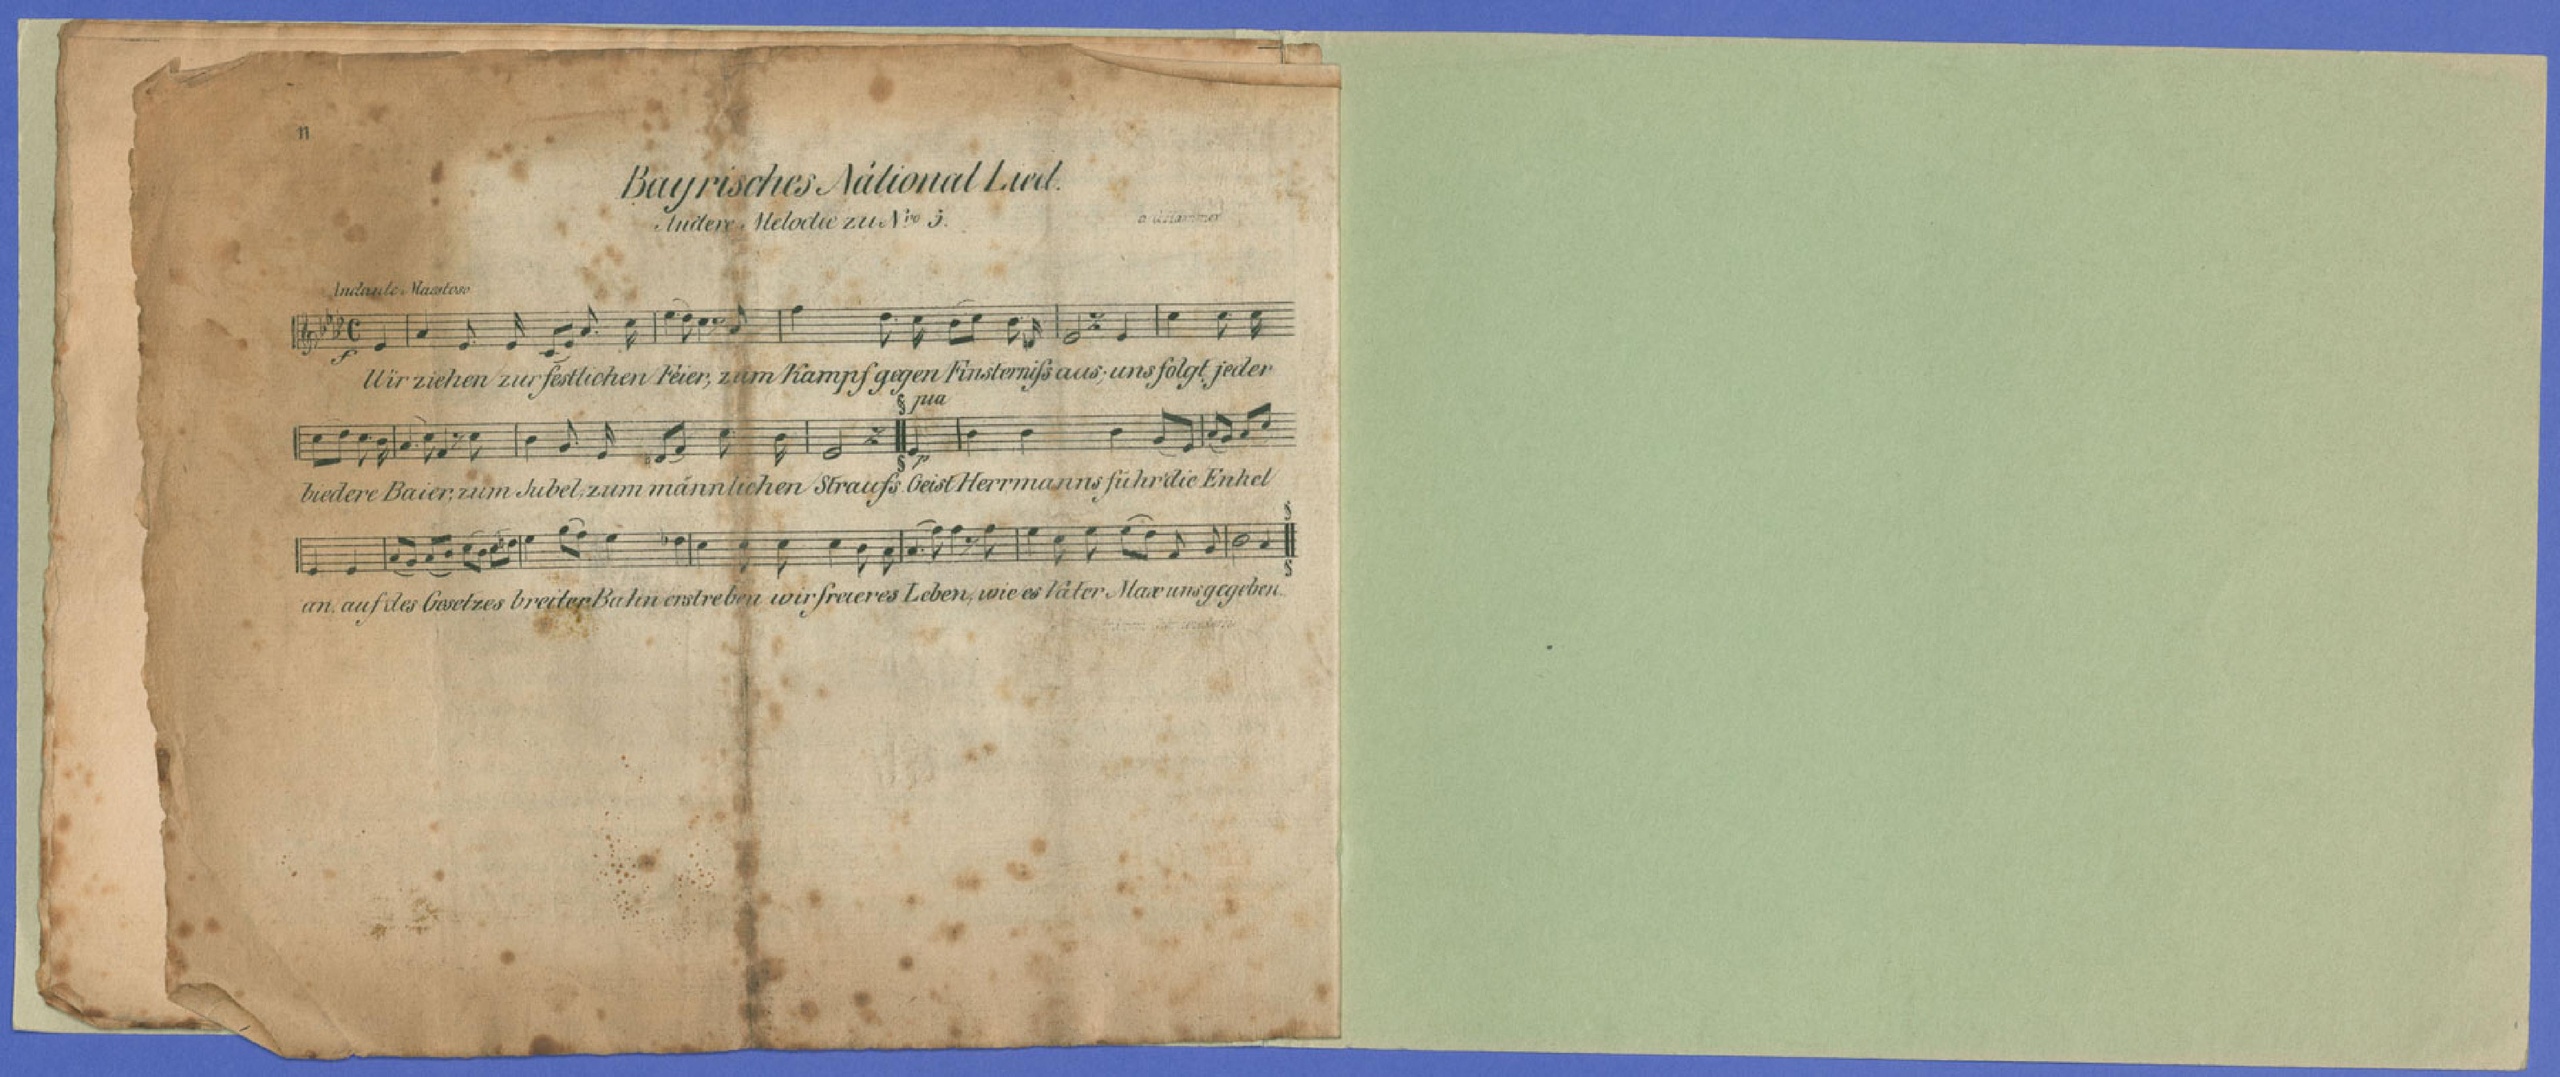 11
Bayrisches National Lied.
Andere Melodie zu Nro 5.
Andante Maestoso
f
Wir ziehen zur festlichen Feier, zum Kampf gegen Finsterniſs aus; uns folgt jeder
pia
p
biedere Baier, zum Jubel, zum männlichen Strauſs. Geist Herrmanns führ die Enkel
an, auf des Gesetzes breiter Bahn erstreben wir freieres Leben, wie es Vater Max uns gegeben.